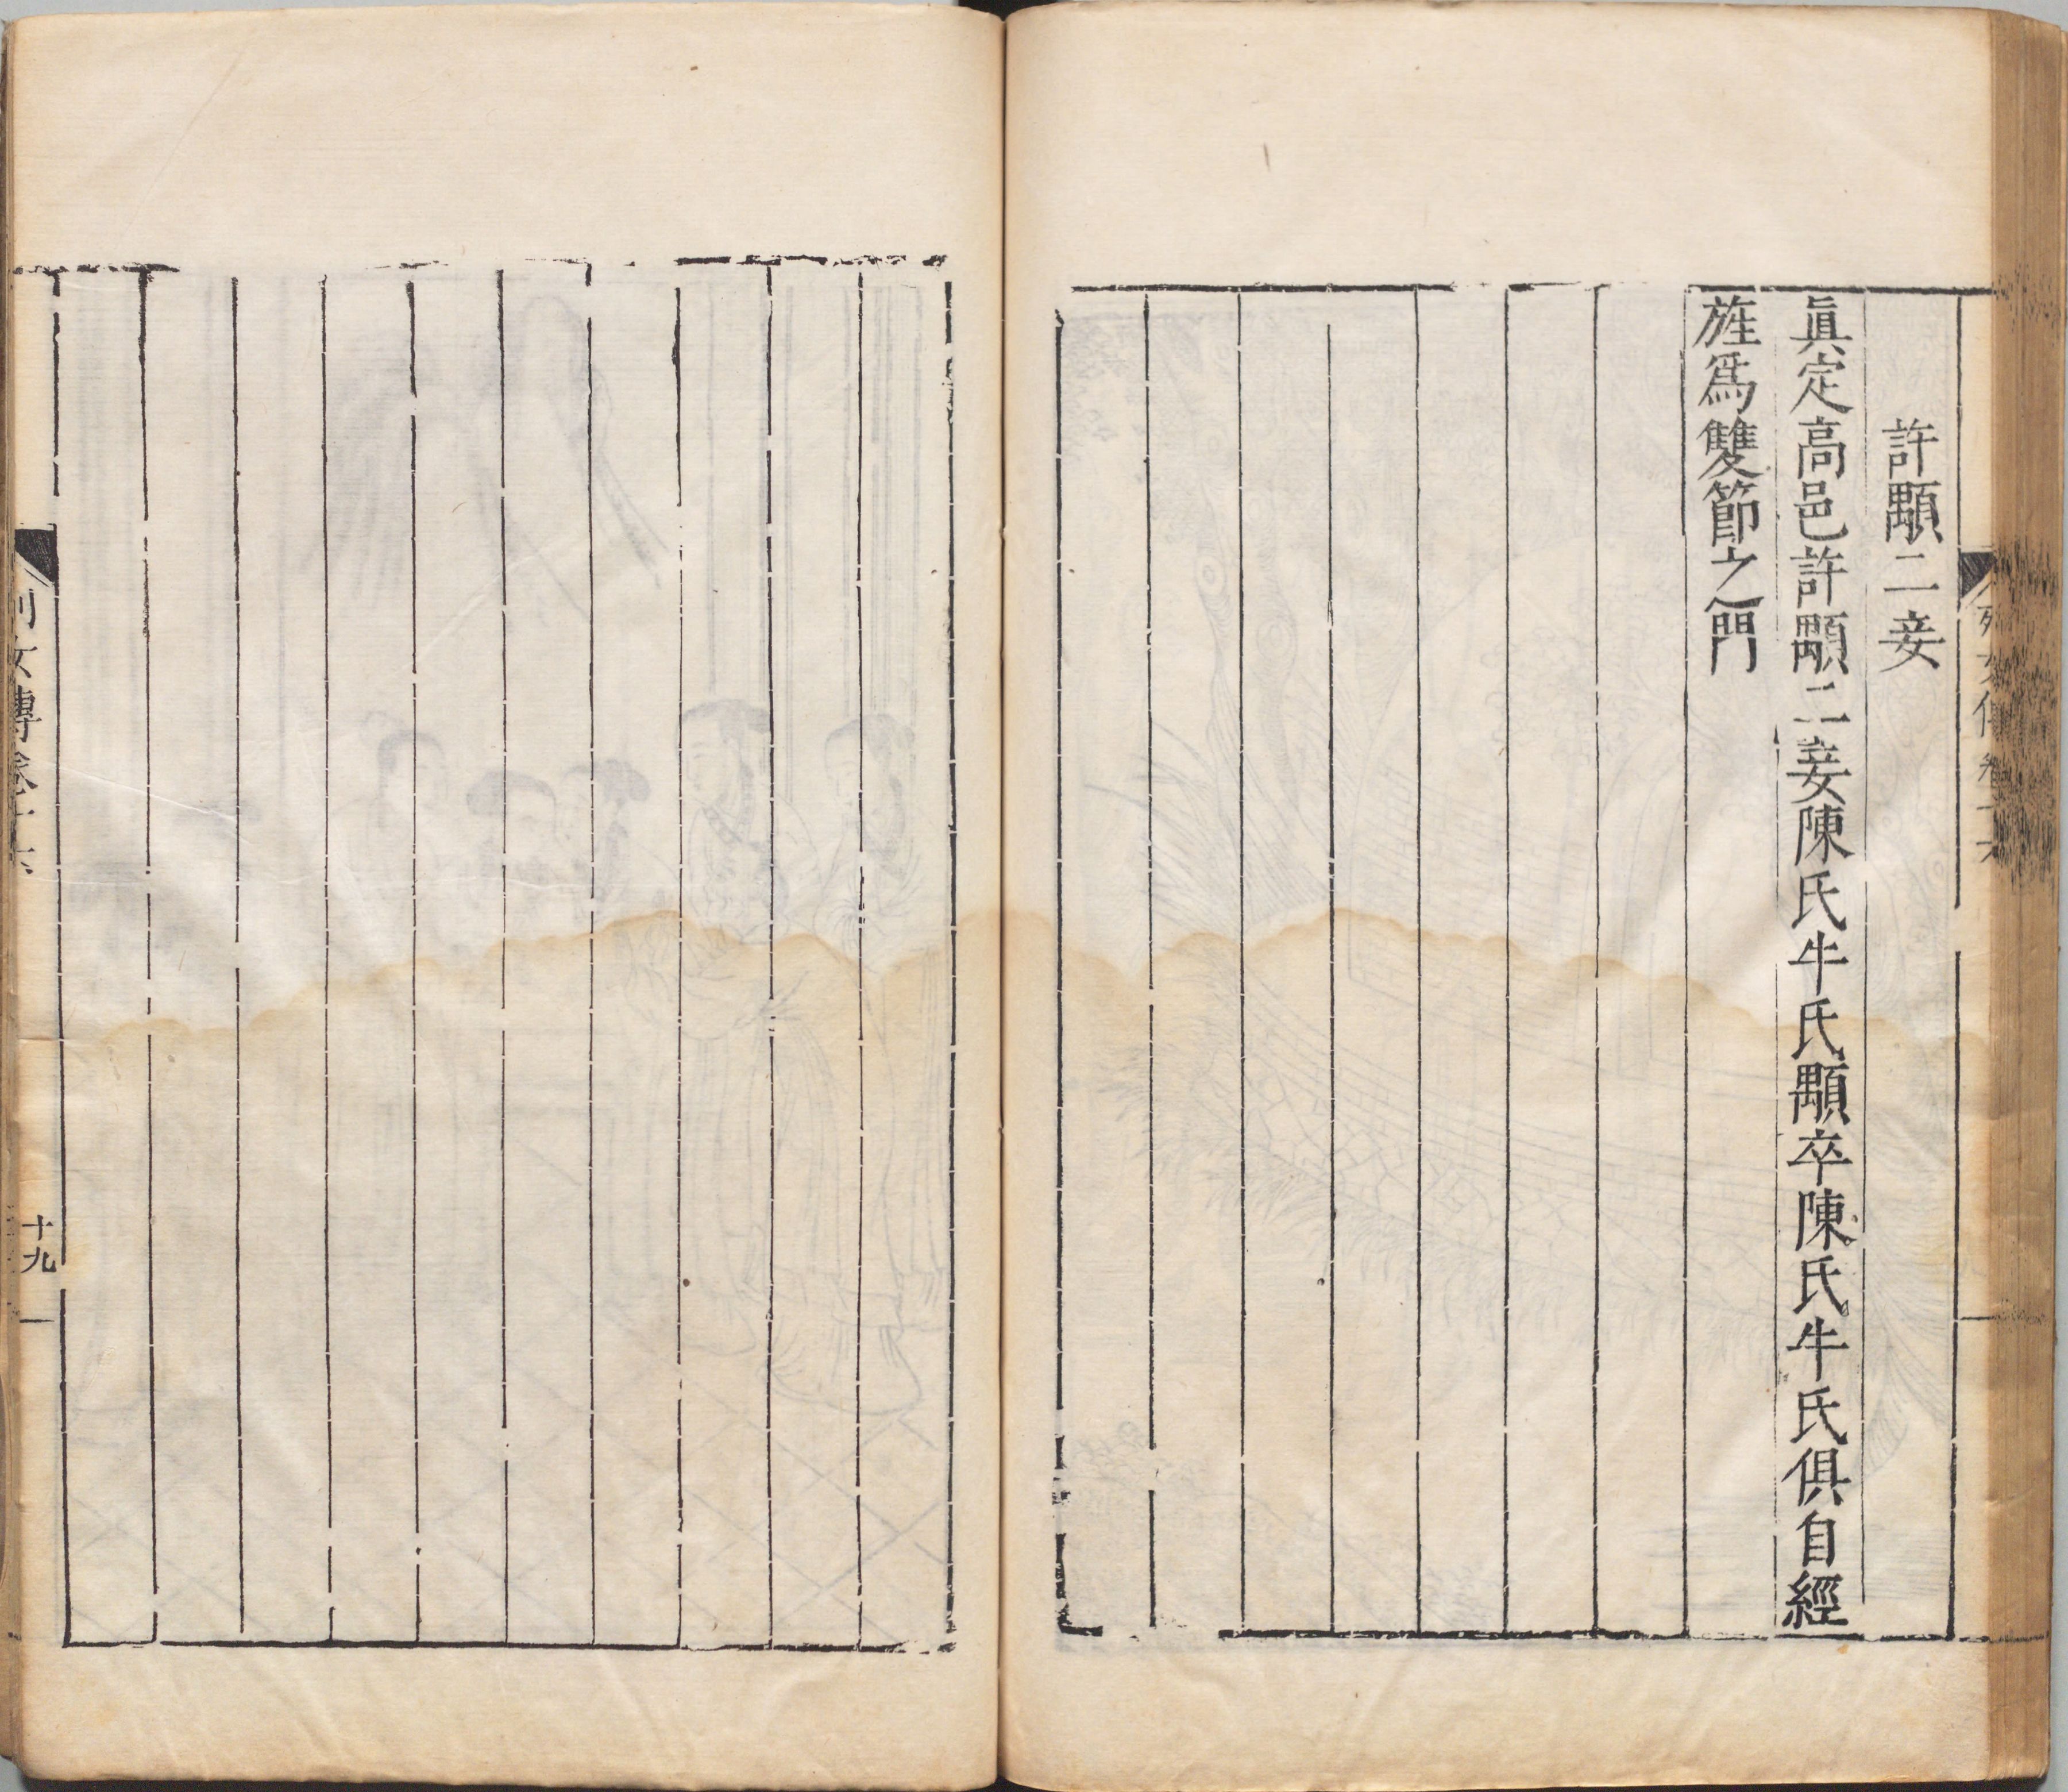 許顒二妾
眞定高邑許顒二妾陳氏牛氏顒卒陳氏牛氏俱自經
旌爲雙節之門
列女傳卷十六
十九